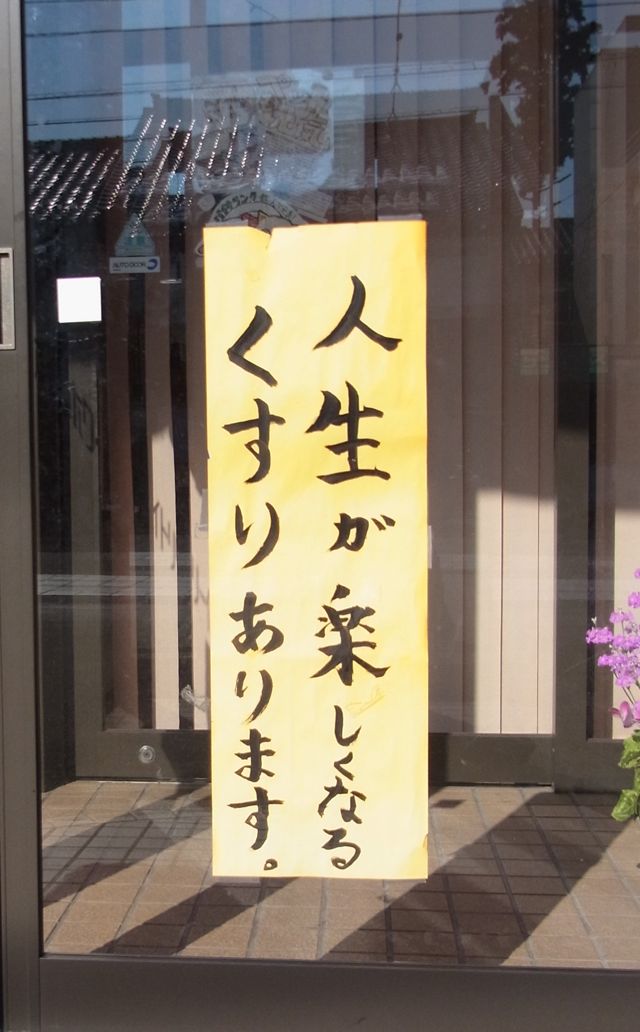 人生が楽しくなる
くすりあります。
AUTO DOOR